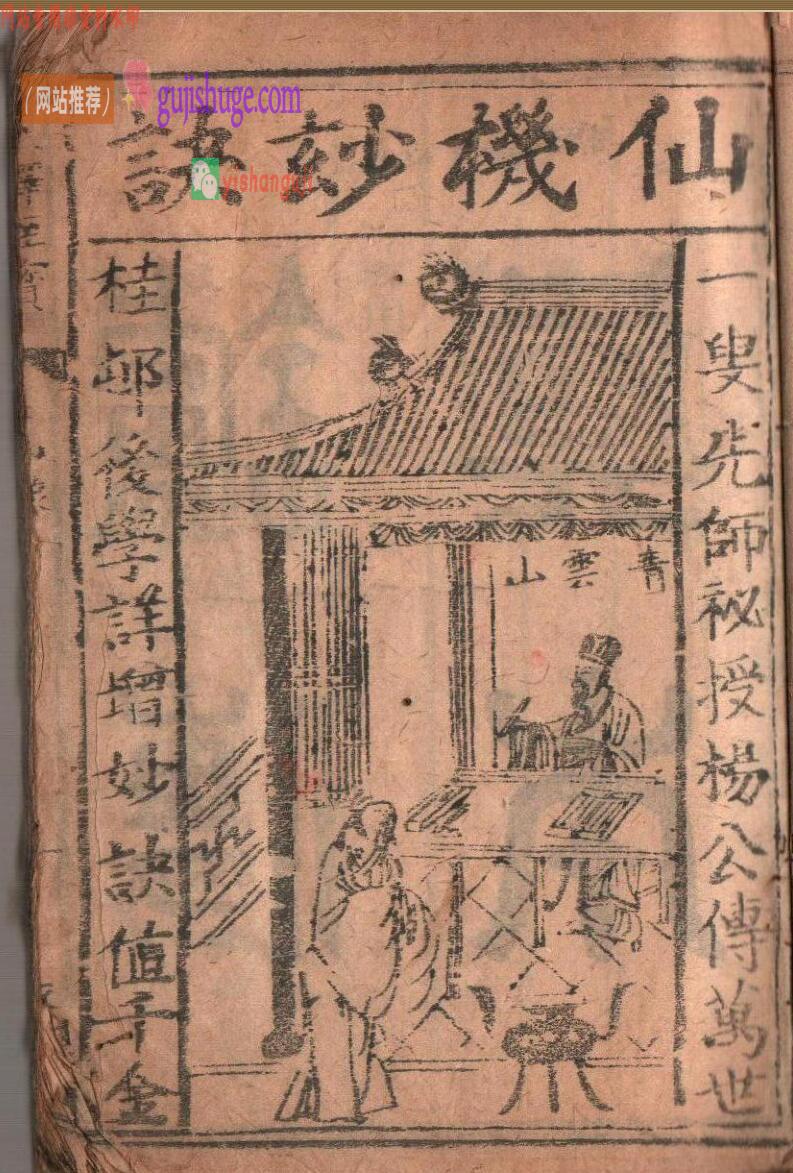 仙機玅訣
一叟先師祕授楊公傳萬世
青雲山
桂邨後學詳增妙訣值千金
（网站推荐）
gujishuge.com
yishanguji